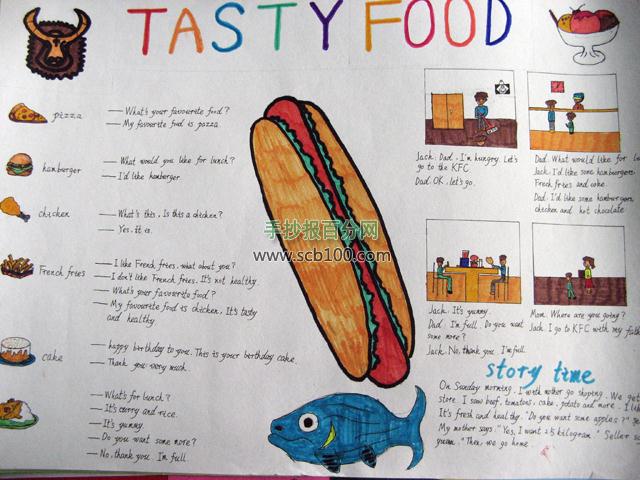 TASTY FOOD
pizza
— What's your favourite food?
— My favourite food is pazza.
hamburger
— What would you like for lunch?
— I'd like hamburger.
chicken
— What's this, Is this a chicken?
— Yes, it is.
French fries
— I like French fries. what about you?
— I don't like French fries. It's not healthy.
— What's your favourite food?
— My favourite food is chicken. It's tasty
and healthy.
cake
— happy birthday to you. This is your berthday cake.
— Thank you very much.
— What's for lunch?
— It's curry and rice.
— It's yummy.
— Do you want some more?
— No, thank you. I'm full.
手抄报百分网
www.scb100.com
Jack: Dad, I'm hungry. Let's
go to the KFC
Dad: OK. let's go.
Dad: What would like for lu
Jack: I'd like some hamburgers,
French fries and coke.
Dad: I'd like some hamburgers,
chicken and hot chocolate
Jack: It's yummy.
Dad: I'm full. Do you want
some more?
Jack: No, thank you. I'm full.
Mom: Where are you going?
Jack: I go to KFC with my fath
story time
On Sunday morning, I with mother go shoping. We get
store. I saw beef, tomatoes, cake, potato and more. I like
It's fresh and healthy. "Do you want some apples?"
My mother says: "Yes, I want 2.5 kilogram." Seller sa
yuan." Then, we go home.